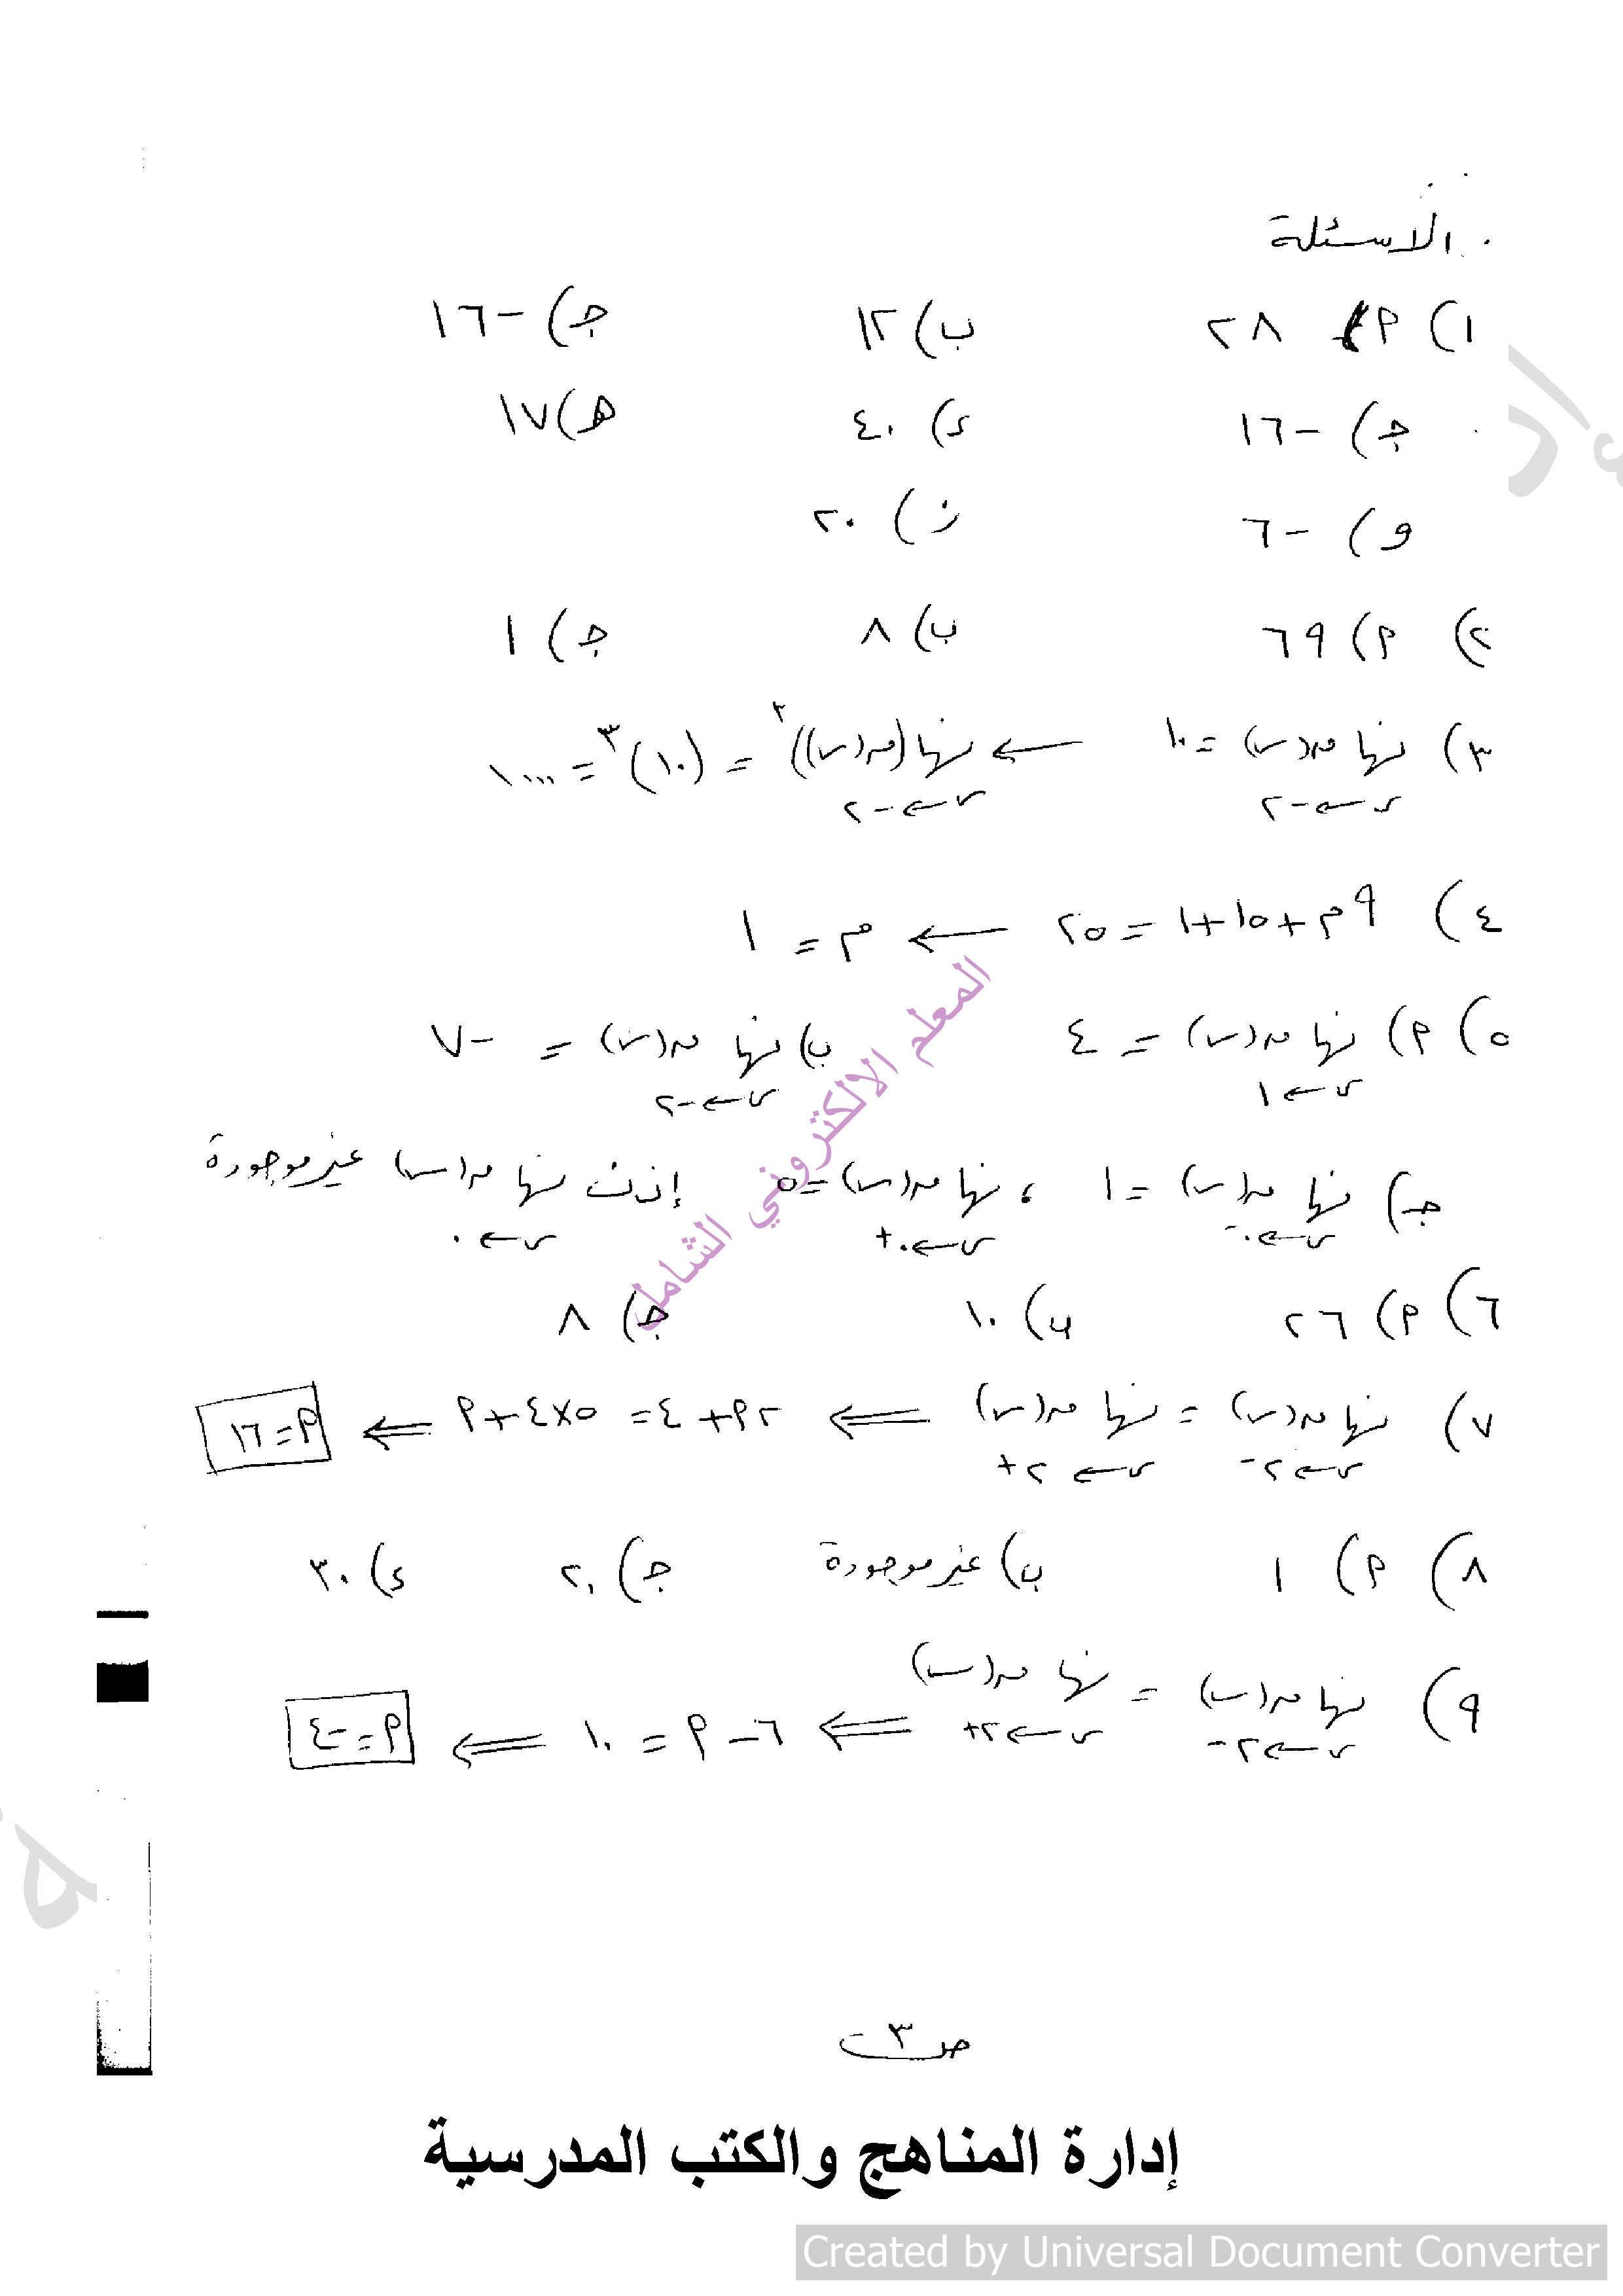 الاسئلة
١) م) ٢٨ ب) ١٢ جـ) -١٦
جـ) -١٦ د) ٤٠ هـ) ١٧
و) -٦ ز) ٢٠
٢) م) ٦٩ ب) ٨ جـ) ١
٣) نها ق(س) = ١٠ ← نها(ق(س))^٣ = (١٠)^٣ = ١٠٠٠
س←-٢ س←-٢
٤) ٩م + ١٥ + ١ = ٢٥ ← م = ١
٥) م) نها ق(س) = ٤ ب) نها ق(س) = -٧
س←١ س←-٢
جـ) نها ق(س) = ١ ، نها ق(س) = ٥ إذن نها ق(س) غير موجودة
س←٠- س←٠+ س←٠
٦) م) ٢٦ ب) ١٠ جـ) ٨
٧) نها ق(س) = نها ق(س) ⇐ ٢م + ٤ = ٥×٤ + م ⇐ م = ١٦
س←٢- س←٢+
٨) م) ١ ب) غير موجودة جـ) ٢٠ د) ٣٠
٩) نها ق(س) = نها ق(س) ⇐ ٦ - م = ١٠ ⇐ م = -٤
س←٢- س←٢+
ص٣
إدارة المناهج والكتب المدرسية
Created by Universal Document Converter
المعلم الالكتروني الشامل